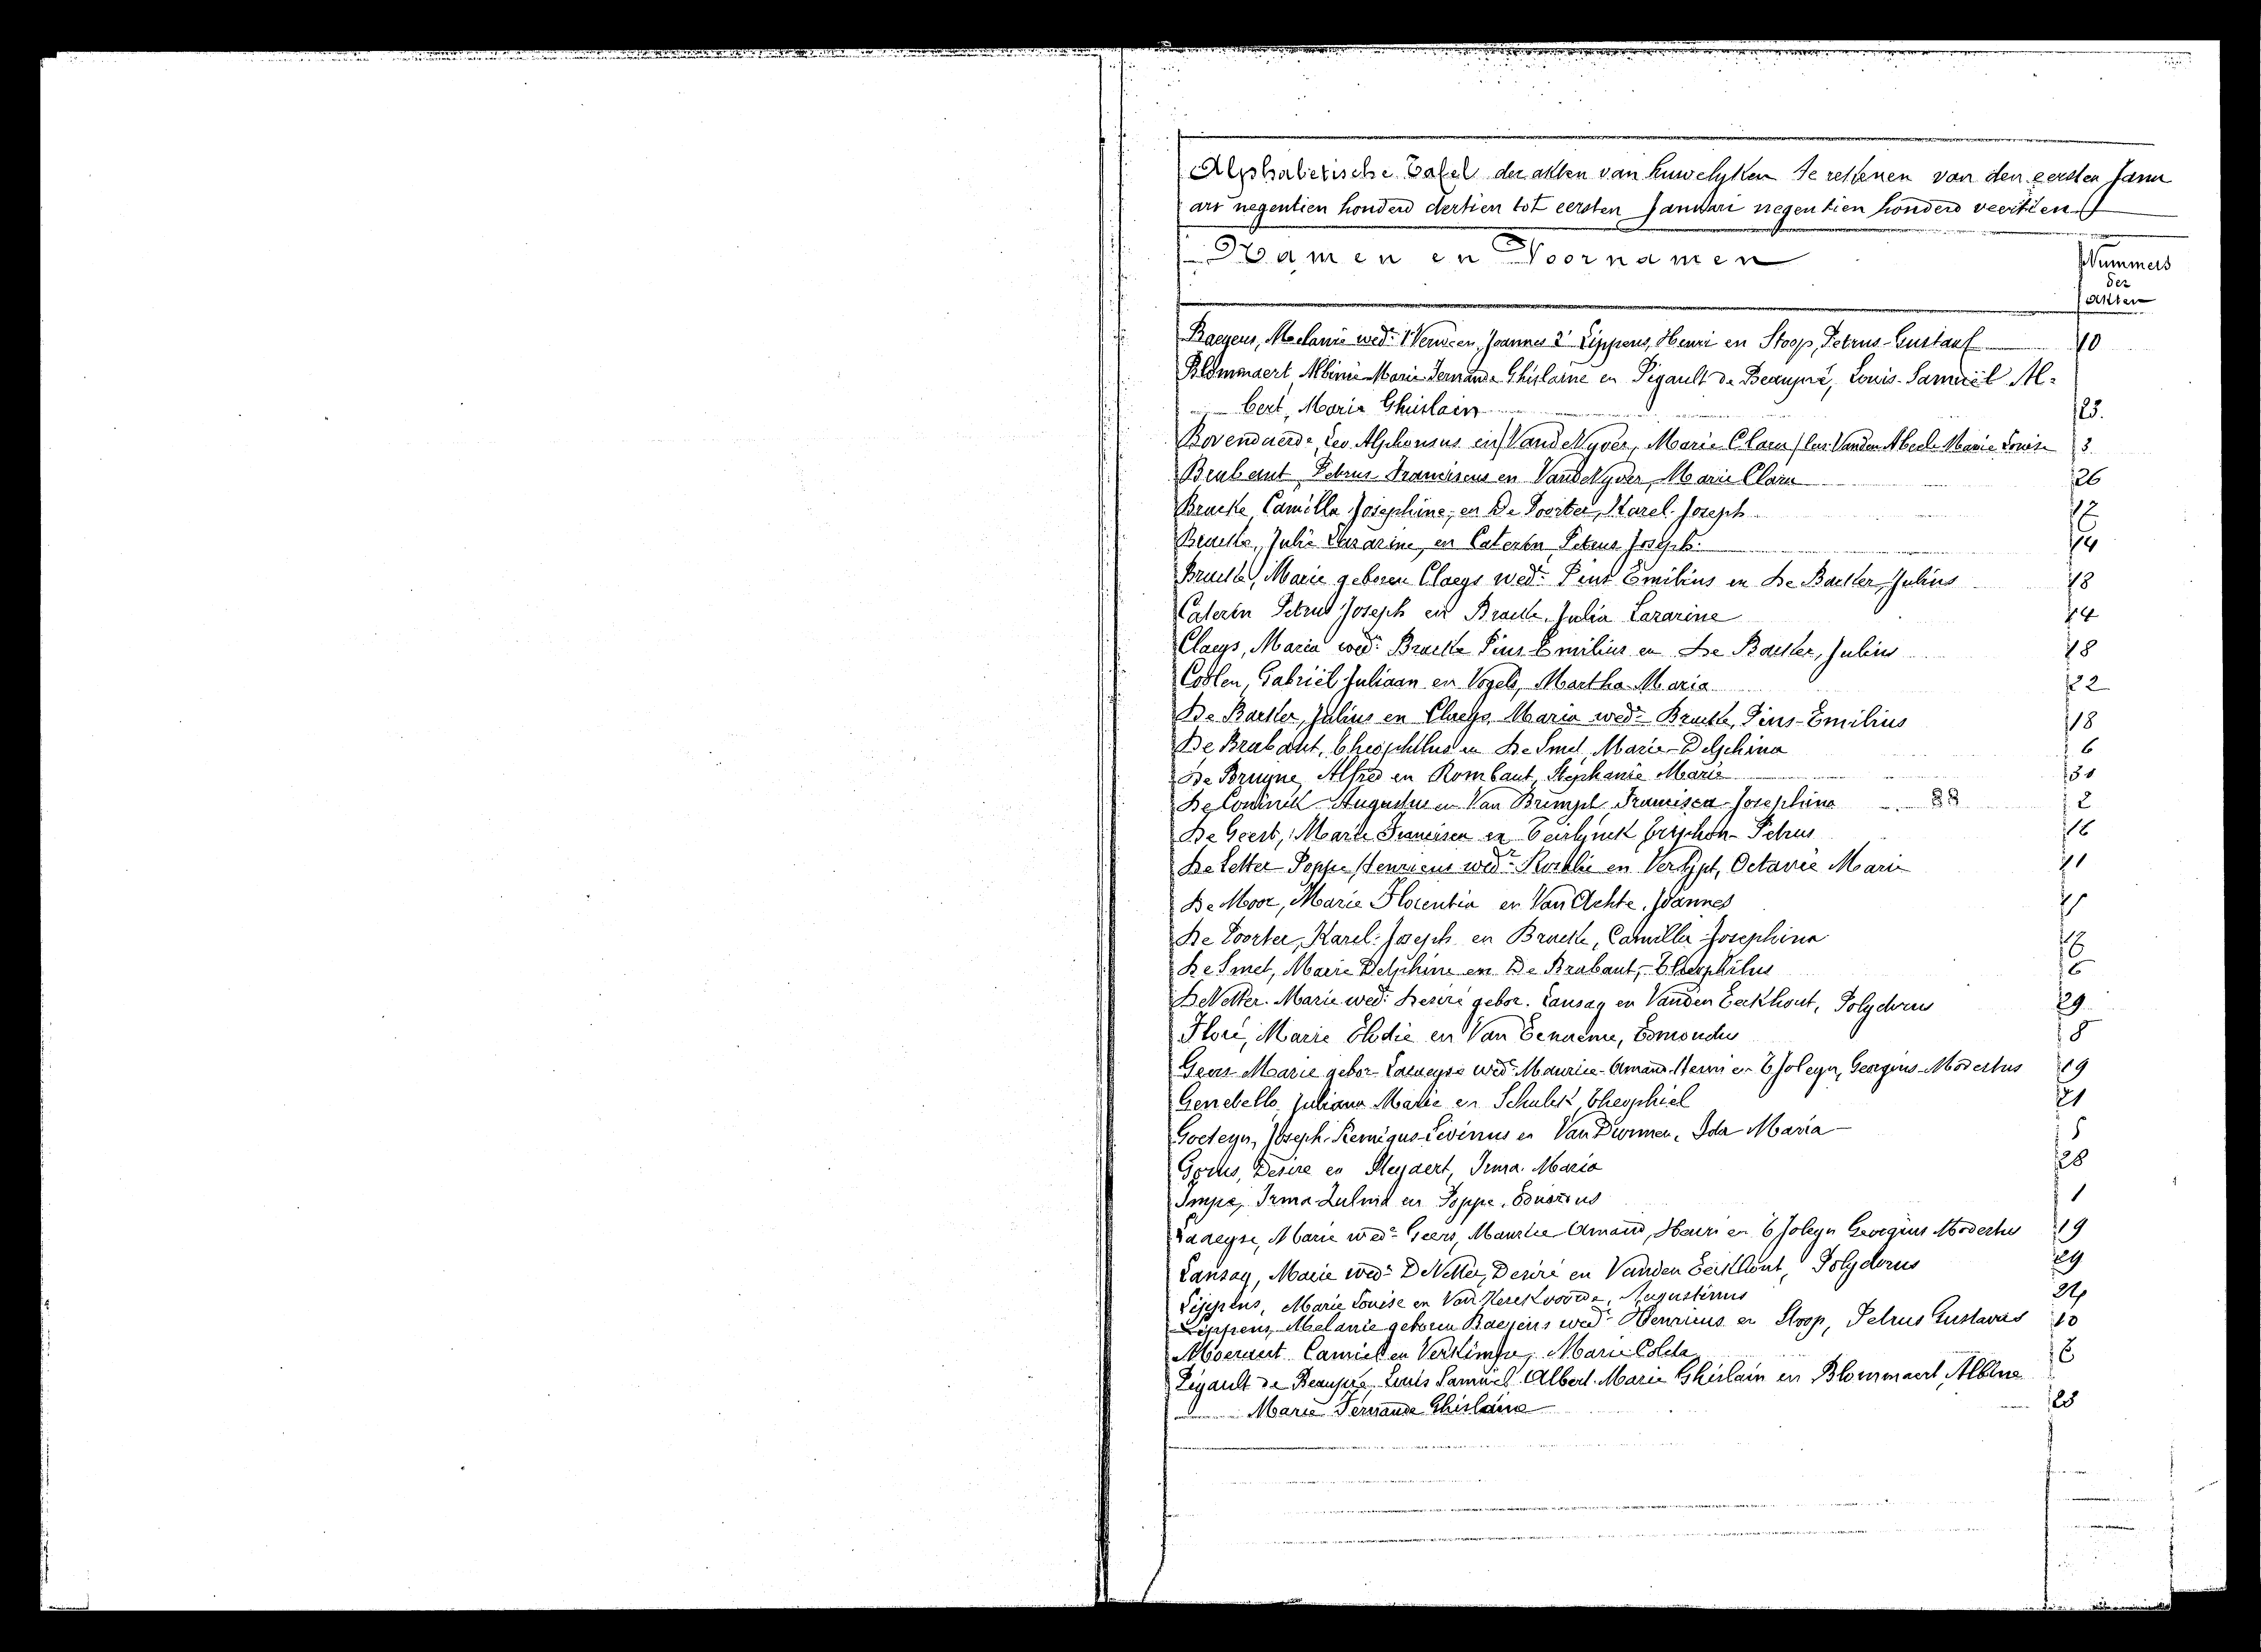 Alphabetische Tafel der akten van huwelyken te rekenen van den eersten Janu
ari negentien honderd dertien tot eersten Januari negentien honderd veertien
Namen en Voornamen
Nummers
der
akten
Baeyens, Melanie wed. 1° Joannes 2° Lippens, Henri en Stoop, Petrus-Gustaaf 10
Blommaert Albinie Marie Fernande Ghislaine en Pigault de Beaupré, Louis-Samuël Al-
bert, Marie Ghislain 23.
Leo Alphonsus en Van de Vyver, Marie Clara Vanden Abeele Marie Louise 3
Brabant Petrus Franciscus en Van de Vyver, Marie Clara 26
Bracke, Camilla Josephine, en De Poorter, Karel Joseph 17
Bracke, Julie Lazarine, en Caterin Petrus Joseph. 14
Bracke, Marie geboren Claeys wed. Pius Emilius en De Backer, Julius 18
Caterin Petrus Joseph en Bracke, Julia Lazarine 14
Claeys, Maria wed. Bracke Pius-Emilius en De Backer, Julius 18
Coolen, Gabriël Juliaan en Vogels, Martha Maria 22
De Backer, Julius en Claeys Maria wed. Bracke, Pius-Emilius 18
De Brabant, Theophilus en De Smet, Marie-Delphina 6
De Bruyne, Alfred en Rombaut, Stephanie Marie 30
De Coninck Augustus en Van Brempt, Francisca-Josephina 2
De Geest, Marie Francisca en Teirlynck Petrus 16
De Letter Poppe Henricus wed. Rosalie en Octavie Marie 11
De Moor, Marie Florentia en Van Achte, Joannes
De Poorter, Karel-Joseph en Bracke, Camilla-Josephina 17
De Smet, Marie Delphine en De Brabant, Theophilus 6
De Vetter Marie wed. Desiré gebor. Lansay en Vanden Eeckhout, Polydorus 29
Floré, Marie Elodie en Van Eenaeme, Edmondus 8
Geers Marie gebor wed. Maurice-Amand-Henri en T'Joleyn, Georgius-Modestus 19
Juliana Marie en Theophiel 21
Goeteyn, Joseph-Remigus-Livinus en Van Durmen, Ida Maria 5
Gorus, Desire en Irma Maria 28
Impe, Irma en Poppe, Eduardus 1
Marie wed. Geers, Maurice Amand, Henri en T'Joleyn Georgius Modestus 19
Lansay, Marie wed. De Vetter, Desiré en Vanden Eeckhout, Polydorus 29
Lippens, Marie Louise en Van Kerckvoorde, Augustinus 24
Lippens, Melanie geboren Baeyens wed. Henricus en Stoop, Petrus Gustavus 10
Moeraert Camiel en Verkimpe, Marie
Pigault de Beaupré, Louis Samuel Albert Marie Ghislain en Blommaert, Albine
Marie Fernande Ghislaine 23